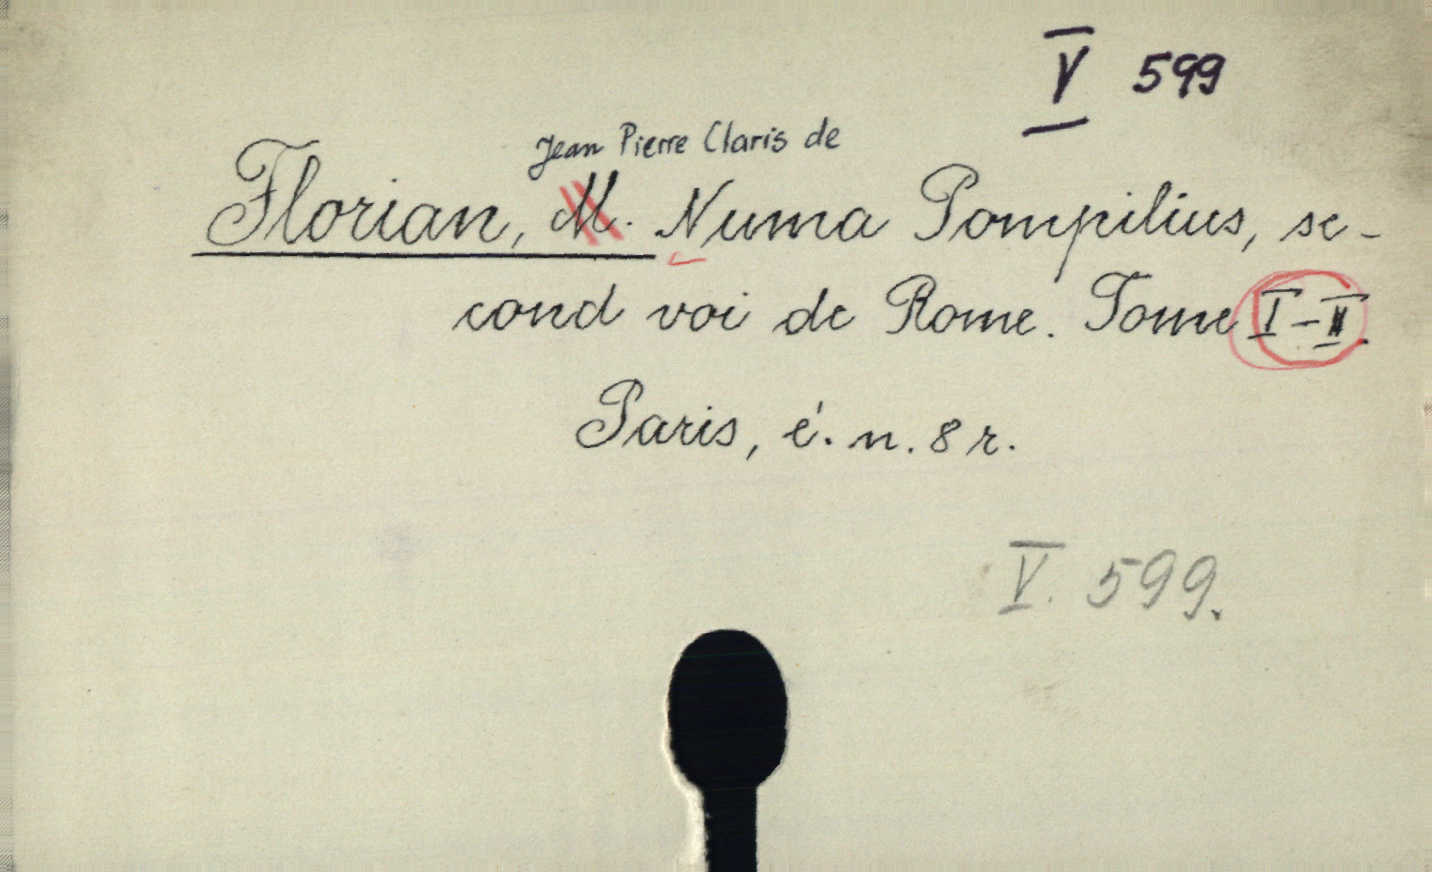 V 599
Jean Pierre Claris de
Florian, M. Numa Pompilius, se-
cond roi de Rome. Tome I-II.
Paris, é. n. 8 r.
V. 599.